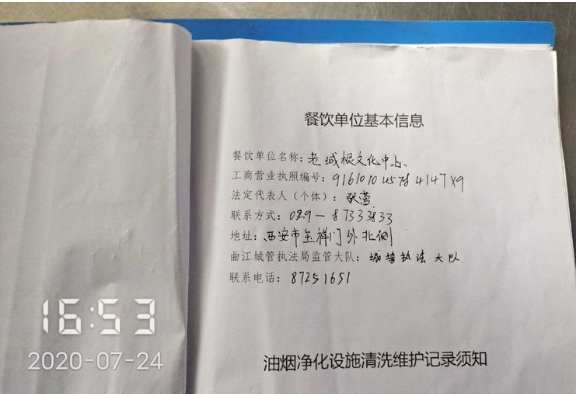 餐饮单位基本信息
餐饮单位名称：老城根文化中心
工商营业执照编号：
法定代表人（个体）：
联系方式：029-87333833
地址：西安市玉祥门外北侧
曲江城管执法局监管大队：城墙执法大队
联系电话：87251651
油烟净化设施清洗维护记录须知
16:53
2020-07-24